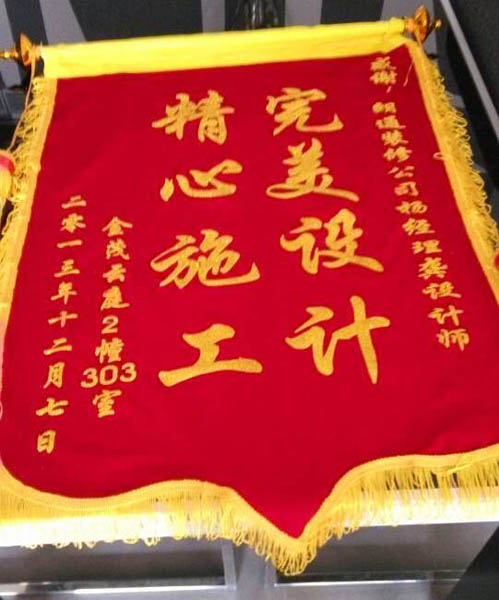 感谢,朗通装修公司杨经理龚设计师
完美设计
精心施工
金茂云庭2幢303室
二零一三年十二月七日